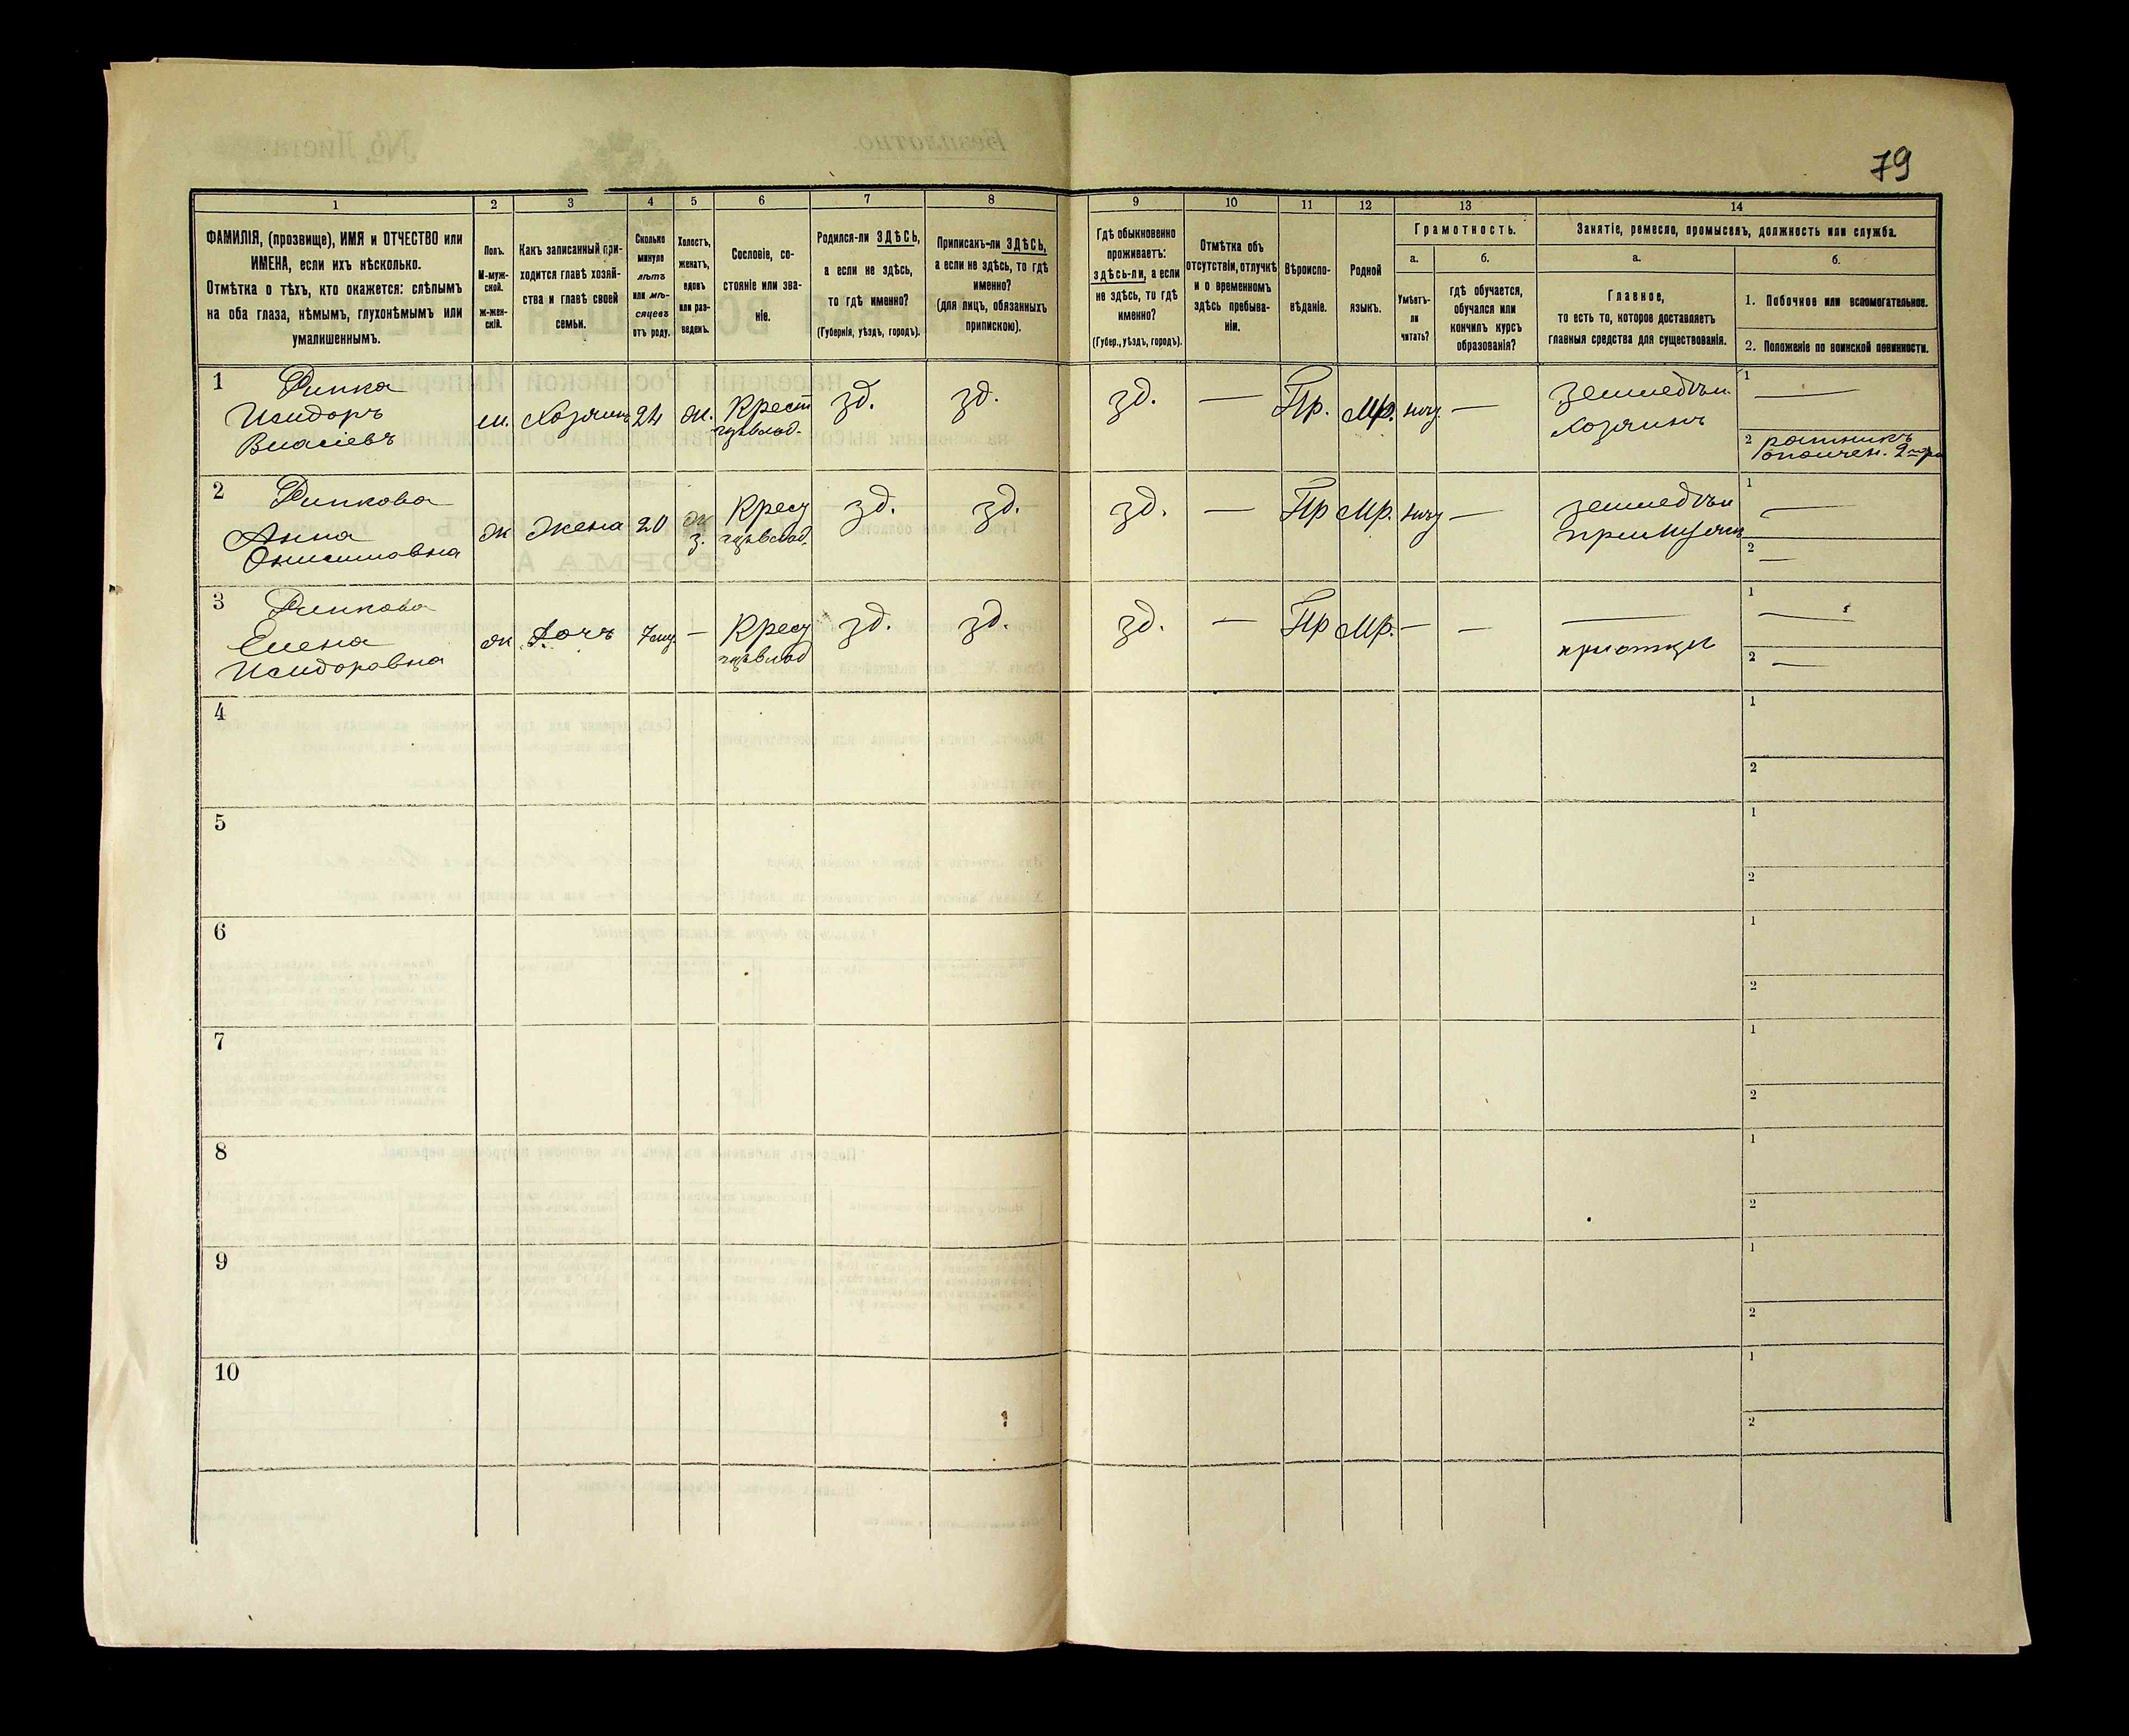 79
1
2
3
4
5
6
7
8
9
10
11
12
13
14
ФАМИЛІЯ, (прозвище), ИМЯ и ОТЧЕСТВО или
ИМЕНА, если ихъ нѣсколько.
Отмѣтка о тѣхъ, кто окажется: слѣпымъ
на оба глаза, нѣмымъ, глухонѣмымъ или
умалишеннымъ.
Полъ.
М-муж-
ской.
Ж-жен-
скій.
Какъ записанный при-
ходится главѣ хозяй-
ства и главѣ своей
семьи.
Сколько
минуло
лѣтъ
или мѣ-
сяцевъ
отъ роду.
Холостъ,
женатъ,
вдовъ
или раз-
веденъ.
Сословіе, со-
стояніе или зва-
ніе.
Родился-ли ЗДѢСЬ,
а если не здѣсь,
то гдѣ именно?
(Губернія, уѣздъ, городъ).
Приписанъ-ли ЗДѢСЬ,
а если не здѣсь, то гдѣ
именно?
(для лицъ, обязанныхъ
припискою).
Гдѣ обыкновенно
проживаетъ:
здѣсь-ли, а если
не здѣсь, то гдѣ
именно?
(Губер., уѣздъ, городъ).
Отмѣтка объ
отсутствіи, отлучкѣ
и о временномъ
здѣсь пребыва-
ніи.
Вѣроиспо-
вѣданіе.
Родной
языкъ.
Грамотность.
а.
Умѣетъ-
ли
читать?
б.
гдѣ обучается,
обучался или
кончилъ курсъ
образованія?
Занятіе, ремесло, промыселъ, должность или служба.
а.
Главное,
то есть то, которое доставляетъ
главныя средства для существованія.
б.
1. Побочное или вспомогательное.
2. Положеніе по воинской повинности.
1
Исидоръ
Власіевъ
м.
Хозяинъ
24
ж.
Крест
зд.
зд.
зд.
—
Пр.
Мр.
—
Хозяинъ
1 —
2 ратникъ
2
Анна
Онисимовна
ж
жена
20
з.
зд.
зд.
зд.
—
Пр
Мр.
—
1 —
2 —
3
Елена
Исидоровна
ж
Дочь
—
зд.
зд.
зд.
—
Пр
Мр.
—
—
—
при отцѣ
1 —
2 —
4
1
2
5
1
2
6
1
2
7
1
2
8
1
2
9
1
2
10
1
2